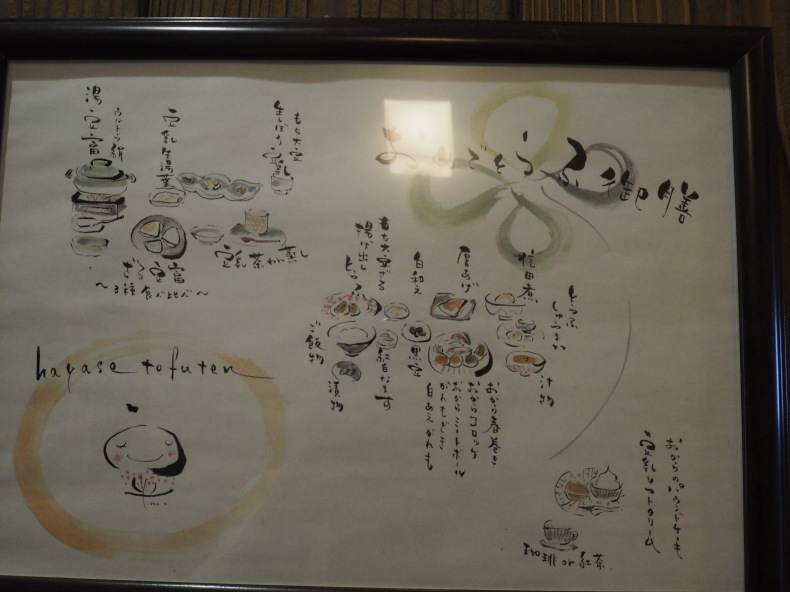 おめでとうふ御膳
もち大豆
生しぼり豆乳
豆乳生湯葉
ウルトラ絹
湯豆富
豆乳茶わん蒸し
ざる豆富
～3種食べ比べ～
とうふ
しゅうまい
信田煮
厚あげ
白和え
もち大豆ざる
揚げ出し
とうふ
汁物
黒豆
紅白なます
ご飯物
漬物
おから春巻き
おからコロッケ
おからミートボール
がんもどき
おからのパウンドケーキ
豆乳ソフトクリーム
珈琲 or 紅茶
hayase tofuten